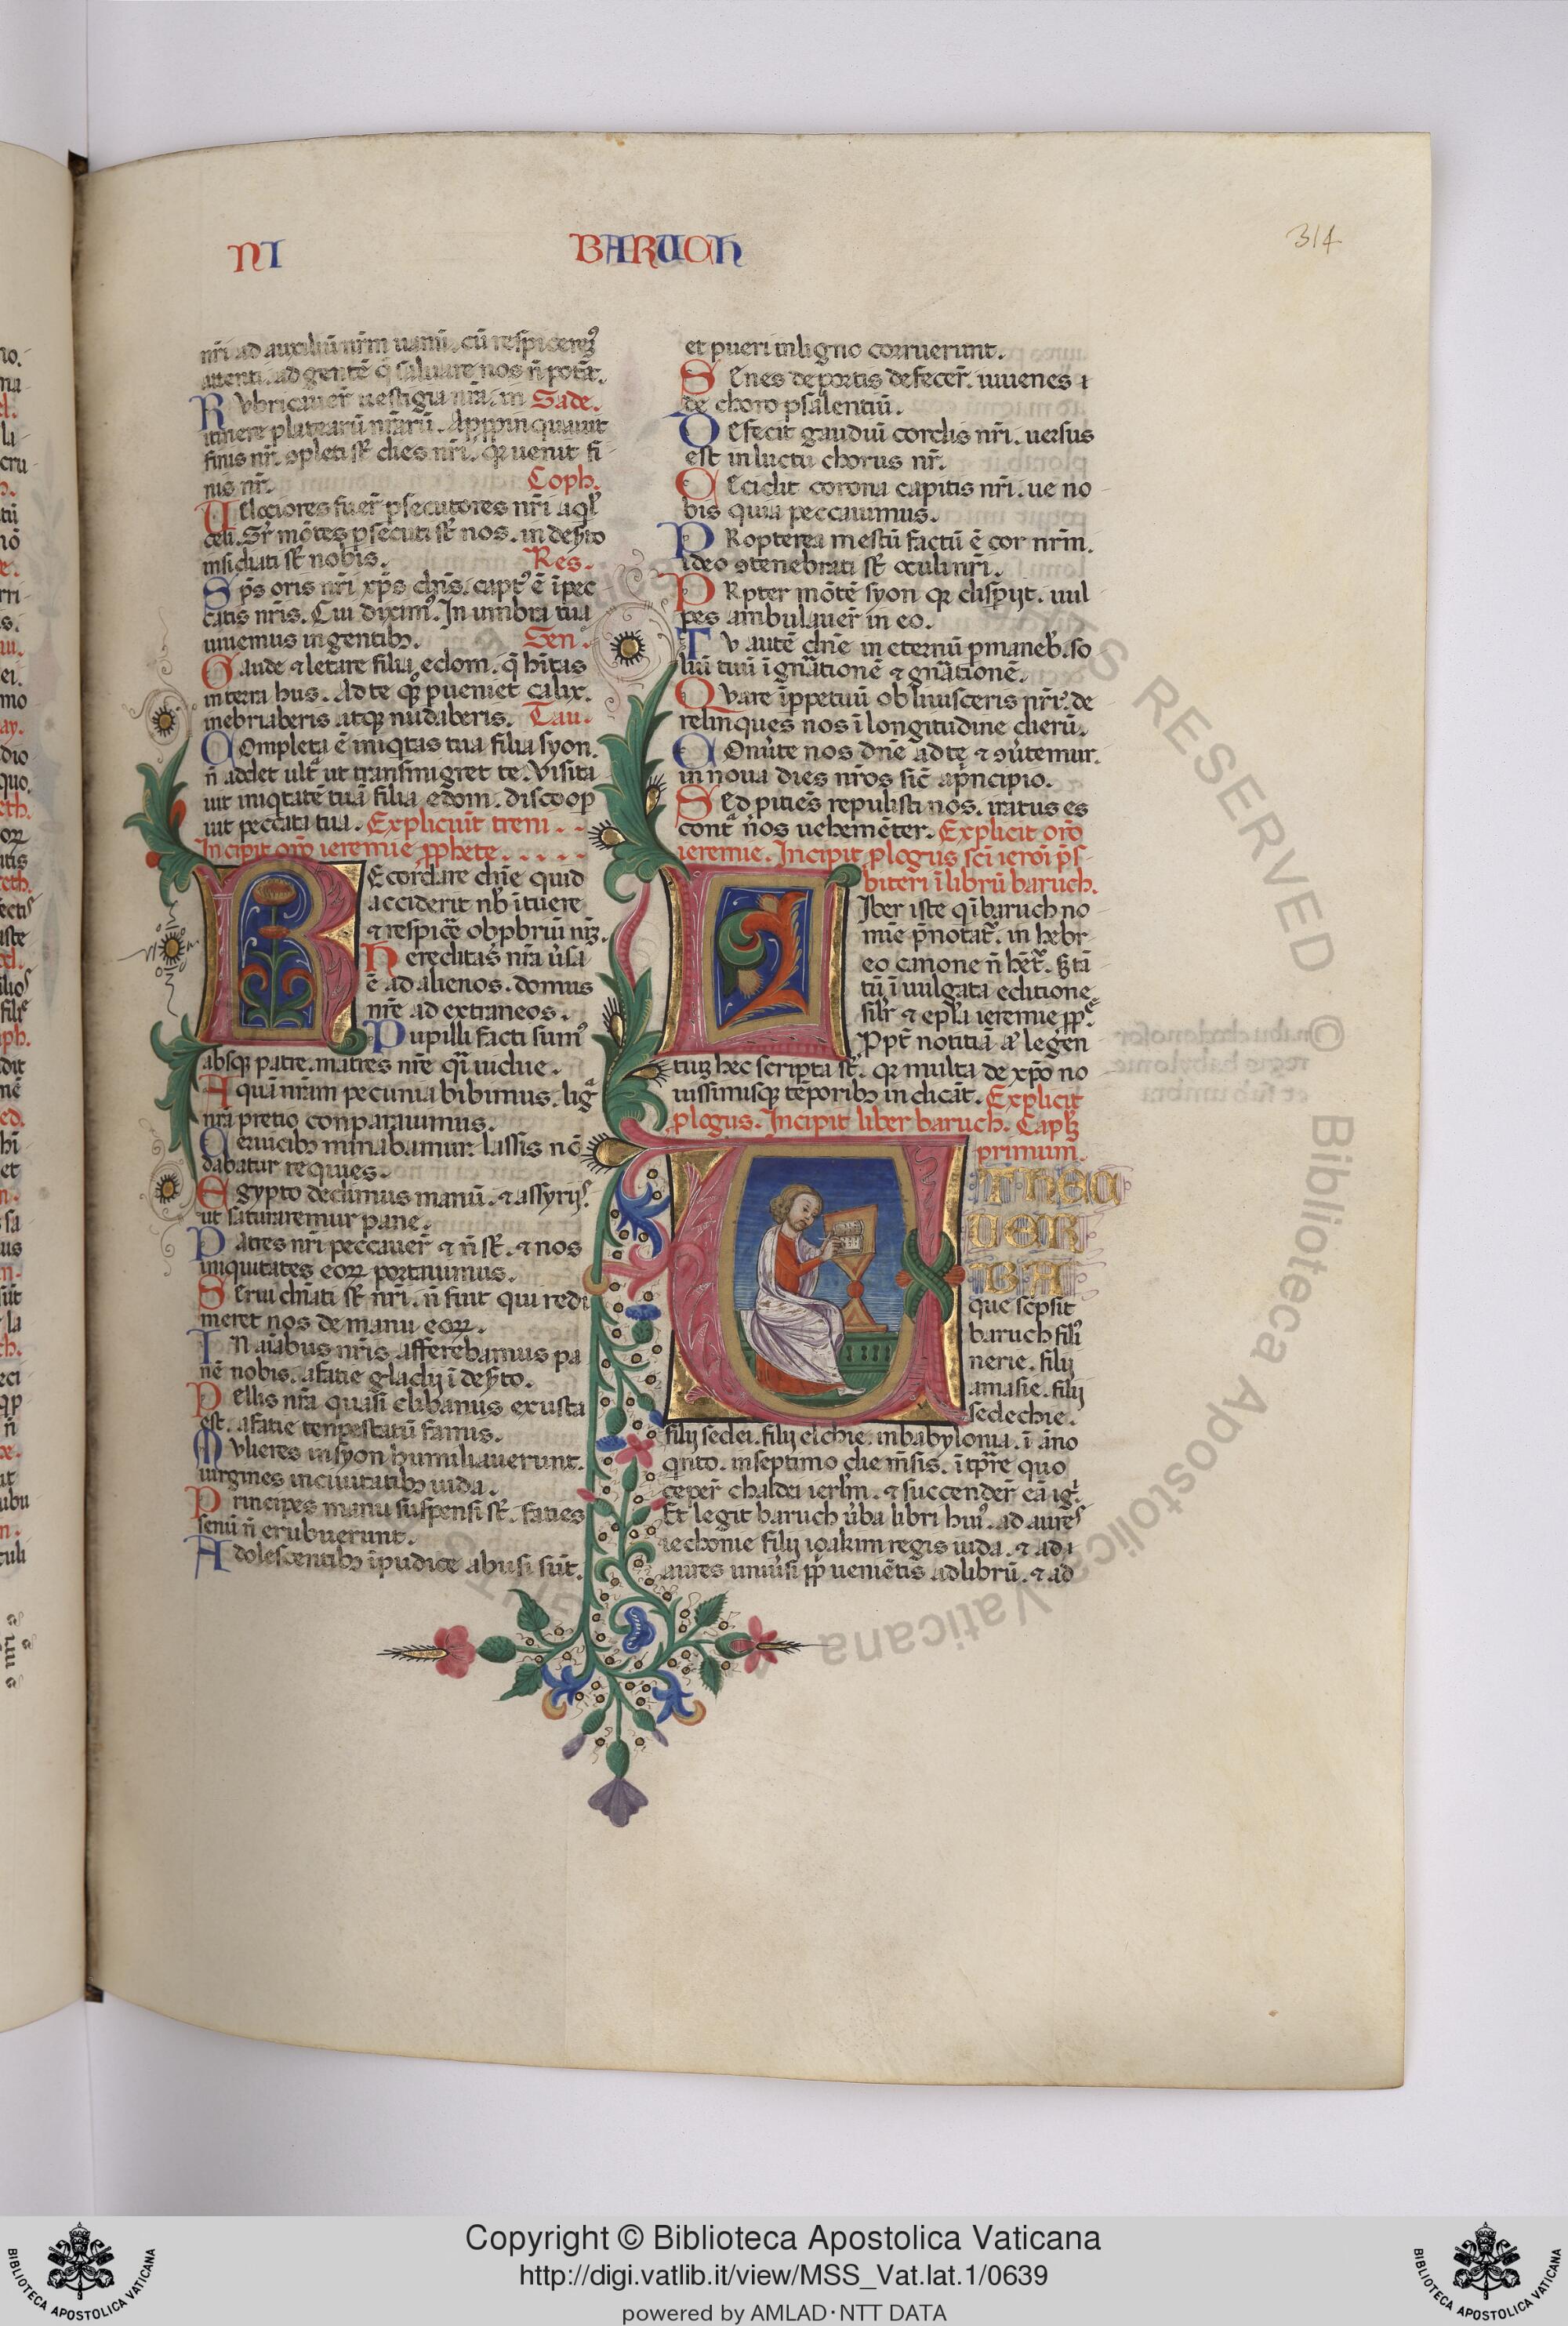 NI
BARUCH
314
nr̄i ad auxiliū nr̄m uanū. cū respicereꝫ
attenti. ad gentē q̄ saluare nos n̄ potāt.
Rvbricauer̄ uestigia nr̄a. in Sade.
itinere platearū nr̄arū. Appropinquauit
finis nr̄. ꝯpleti st̄ dies nr̄i. qꝛ uenit fi
nis nr̄. Coph.
Uelociores fuer̄ ꝑsecutores nr̄i aq̄l
celi. Sr̄ mōtes ꝑsecuti st̄ nos. in deẜto
insidiati st̄ nobis. Res.
Sp̄s oris nr̄i xp̄s dn̄s. captꝰ ē ī pec
catis nr̄is. Cui diximꝰ. In umbra tua
uiuemus in gentibꝫ. Sen.
Gaude ⁊ letare filia edom. q̄ hītas
in terra hus. Ad te qꝫ ꝑueniet calix.
inebriaberis atqꝫ nudaberis. Tau.
Completa ē iniq̄tas tua filia syon.
n̄ addet ultᵃ ut transmigret te. Visita
uit iniq̄tatē tuā filia edom. discoop
uit peccata tua. Expliciūt treni . .
Incipit orō ieremie ꝓphete . . . . .
REcordare dn̄e quid
acciderit nb̄ ītuere
⁊ respice obꝓbriū nr̄ꝫ.
Hereditas nr̄a ūsa
ē ad alienos. domus
nr̄e ad extraneos.
Pupilli facti sumꝰ
absqꝫ patre. matres nr̄e qᵃ uidue.
Aquā nr̄am pecunia bibimus. ligᵃ
nr̄a pretio conparauimus.
Ceruicibꝫ minabamur. lassis nō
dabatur requies.
Egypto dedimus manū. ⁊ assyrijˢ
ut saturaremur pane.
Patres nr̄i peccauer̄ ⁊ n̄ st̄. ⁊ nos
iniquitates eoꝝ portauimus.
Serui dn̄ati st̄ nr̄i. n̄ fuit qui redi
meret nos de manu eoꝝ.
IN aīabus nr̄is afferebamus pa
nē nobis. a fatie gladij ī deẜto.
Pellis nr̄a quasi clibanus exusta
est. a fatie tenpestatū famis.
Mvlieres in syon humiliauerunt.
uirgines in ciuitatibꝫ iuda.
Principes manu suspensi st̄. faties
senū n̄ erubuerunt.
Adolescentibꝫ īpudice abusi sūt.
et pueri in ligno corruerunt.
Senes de portis defecer̄. iuuenes
de choro psalentiū.
Defecit gaudiū cordis nr̄i. uersus
est in luctū chorus nr̄.
Cecidit corona capitis nr̄i. ue no
bis quia peccauimus.
PRopterea mestū factū ē cor nr̄m.
ideo ꝯtenebrati st̄ oculi nr̄i.
PRpter mōtē syon qꝛ disꝑijt. uul
pes ambulauer̄ in eo.
Tv autē dn̄e in eternū ꝑmaneb̄. so
liū tuū ī gn̄ationē ⁊ gn̄ationē.
Qvare īꝑpetuū obliuisceris nr̄i. de
relinques nos ī longitudine dierū.
Conūte nos dn̄e ad te ⁊ ꝯūtemur.
innoua dies nr̄os sic̄ a pͥncipio.
Sed ꝓitiēs repulisti nos. iratus es
contᵃ nos uehemēter. Explicit orō
ieremie. Incipit ꝓlogus sc̄i ieroī p̄s
biteri ī librū baruch.
LIber iste q̄ baruch no
mīe p̄notat̄. in hebr
eo canone n̄ hēt̄. sꝫ tā
tū ī uulgata editione.
silr̄ ⁊ epl̄a ieremie ꝓp̄ᵉ.
Ppt̄ notitiā āt legēn
tiuꝫ hec scripta st̄. qꝛ multa de xp̄o no
uissimisqꝫ tēporibꝫ indicāt. Explicit
ꝓlogus. Incipit liber baruch. Capꝫ
primum.
ET HEC
UER
BA
que sc̄psit
baruch filiꝰ
nerie. filij
amasie. filij
sedechie.
filij sedei. filij elchie. in babylonia. ī āno
qͥnto. in septimo die mēsis. ī tp̄re quo
ceper̄ chaldei ierl̄m. ⁊ succender̄ eā igⁱ.
Et legit baruch ūba libri huiꝰ. ad aureˢ
iechonie filij ioakim regis iuda. ⁊ ad
aures uniūsi pp̄ li ueniētis ad librū. ⁊ ad
Copyright © Biblioteca Apostolica Vaticana
http://digi.vatlib.it/view/MSS_Vat.lat.1/0639
powered by AMLAD·NTT DATA
BIBLIOTECA APOSTOLICA VATICANA
BIBLIOTECA APOSTOLICA VATICANA